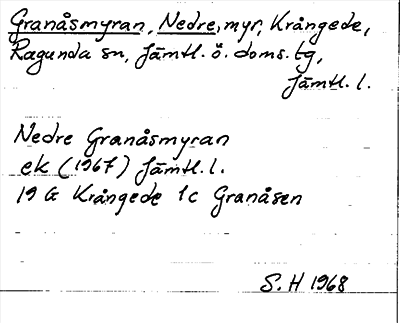 Granåsmyran, Nedre, myr, Krångede,
Ragunda sn, Jämtl. ö. doms. tg,
Jämtl. l.
Nedre Granåsmyran
ek (1967) Jämtl. l.
19 G Krångede 1c Granåsen
S. H 1968